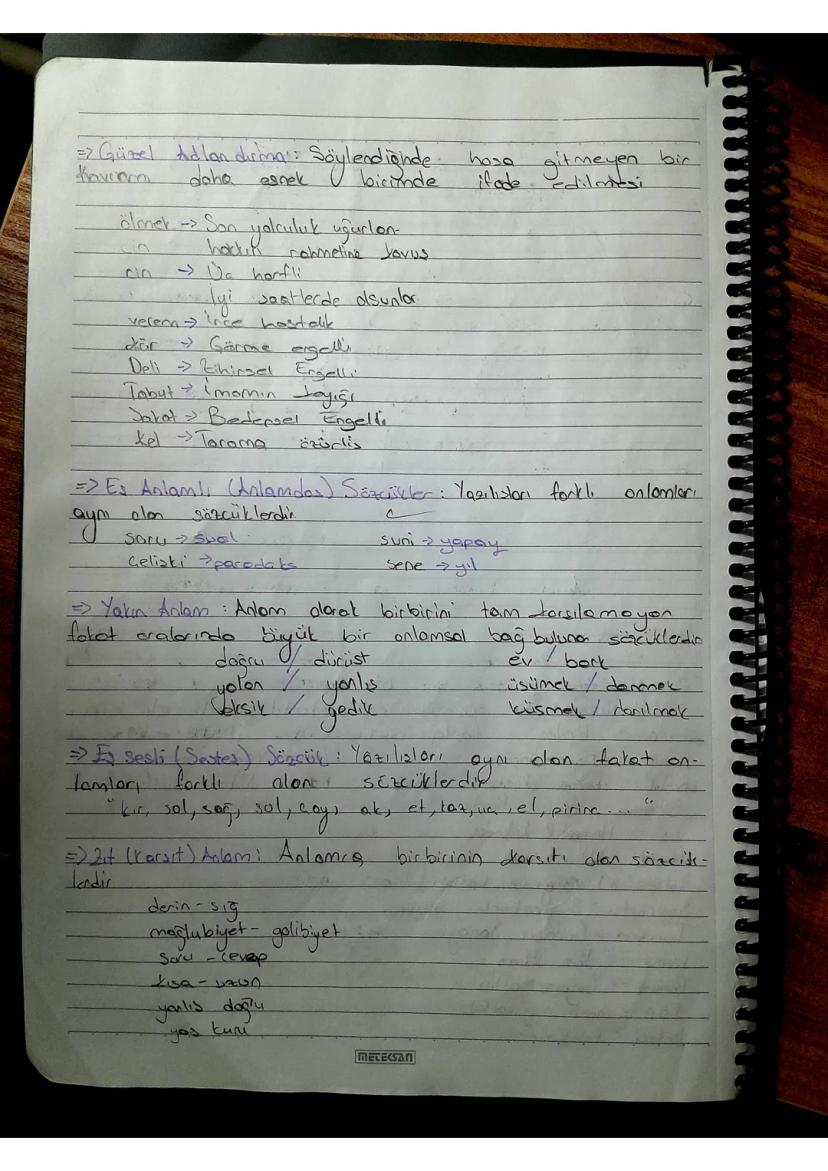 => Güzel Adlandırma: Söylendiğinde hoşa gitmeyen bir
kavramın daha esnek biçimde ifade edilmesi
ölmek -> Son yolculuk uğurlan-
hakkık rahmetine kavuş
cin -> Üç harfli
İyi saatlerde olsunlar
verem -> İnce hastalık
kör -> Görme engelli
Deli -> Zihinsel Engelli
Tabut -> İmamın kayığı
Sakat -> Bedensel Engelli
Kel -> Tarama özürlüs
=> Eş Anlamlı (Anlamdaş) Sözcükler: Yazılışları farklı anlamları
aynı olan sözcüklerdir.
soru -> sual suni -> yapay
Çelişki -> paradoks sene -> yıl
=> Yakın Anlam: Anlam olarak birbirini tam karşılamayan
fakat aralarında büyük bir anlamsal bağ buluna sözcüklerdir
doğru / dürüst ev / bark
yalan / yanlış üşümek / donmak
Eksik / gedik küsmek / darılmak
=> Eş sesli (Sesteş) Sözcük: Yazılışları aynı olan fakat an-
lamları farklı olan sözcüklerdir
"kır, sol, sağ, sol, çay, ak, et, kaz, el, pirinç... "
=> Zıt (Karşıt) Anlam: Anlamca birbirinin karşıtı olan sözcük-
lerdir
derin - sığ
mağlubiyet - galibiyet
Soru - cevap
kısa - uzun
yanlış doğru
yaş kuru
METEKSAN